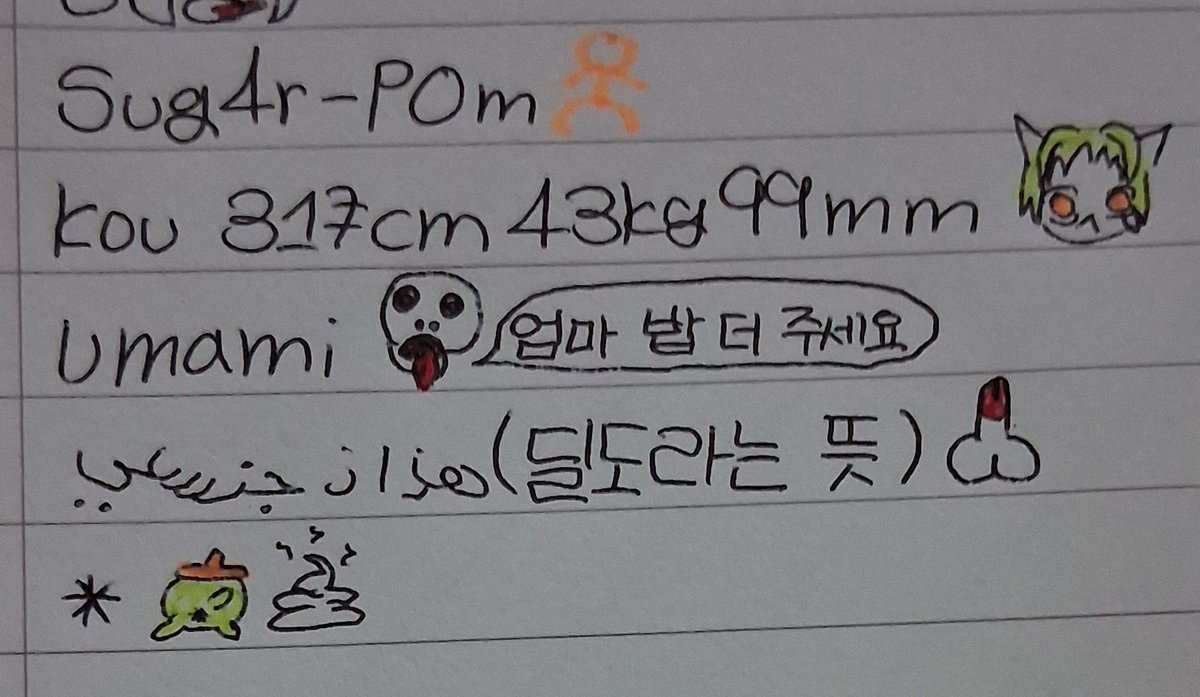 Sug4r-POm
Kou 317cm 43kg 99mm
Umami 엄마 밥 더 주세요
هزاز جنسي (딜도라는 뜻)
*